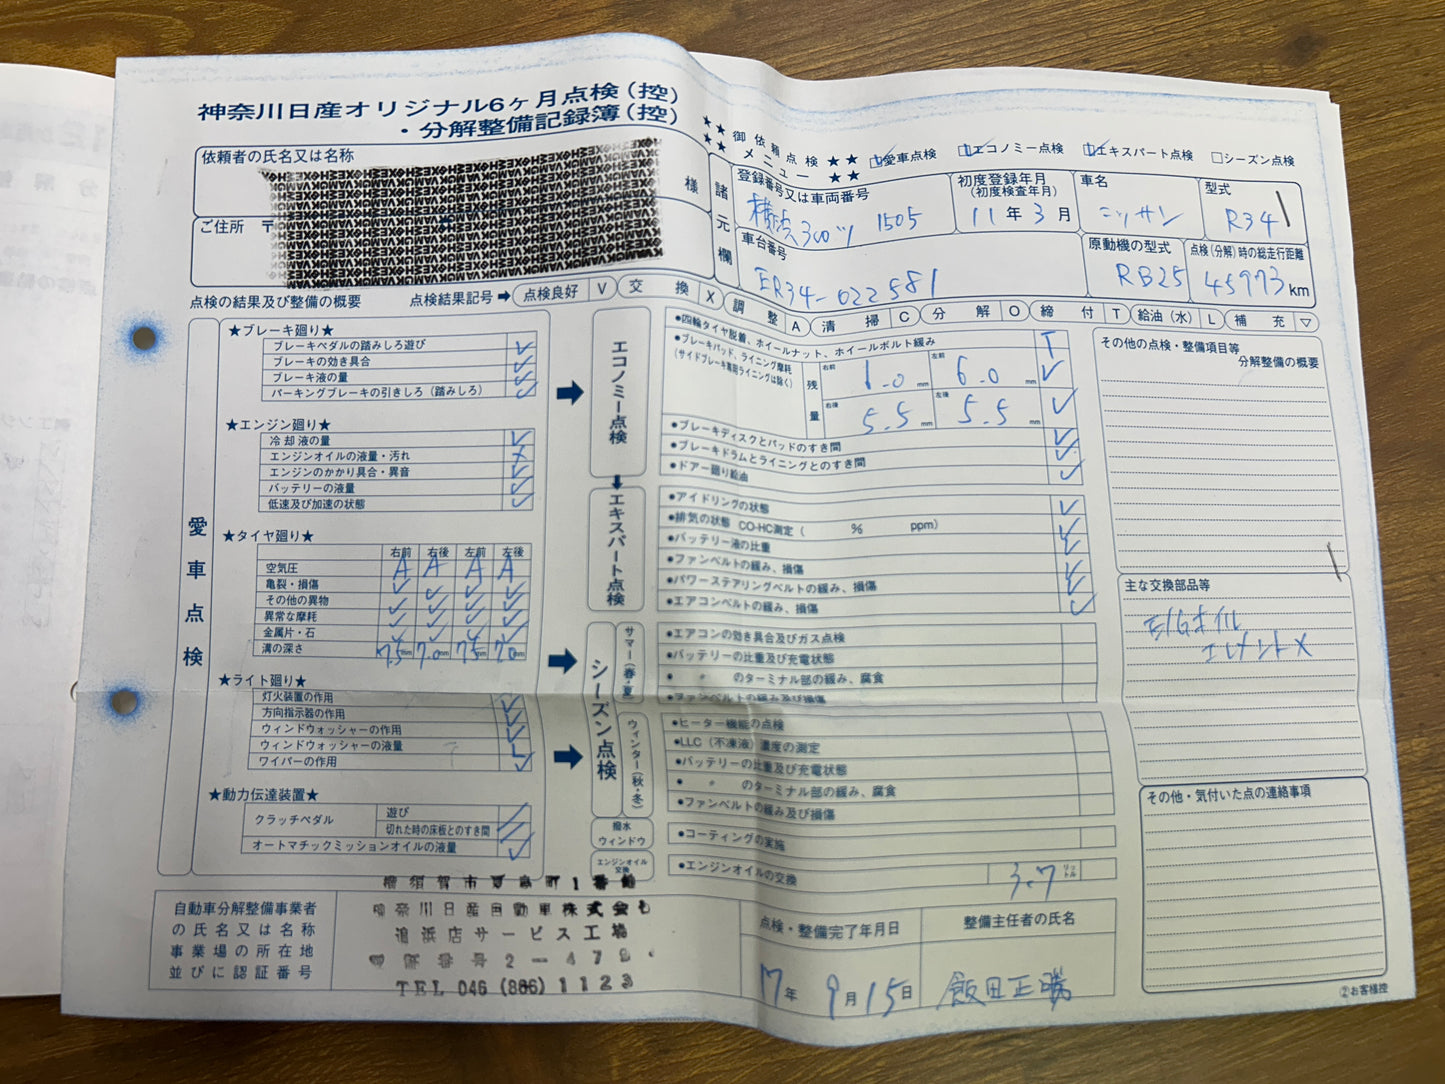 神奈川日産オリジナル6ヶ月点検(控)
・分解整備記録簿(控)
依頼者の氏名又は名称
様
ご住所 〒
★★御依頼点検★★
★★メニュー★★
愛車点検 エコノミー点検 エキスパート点検 シーズン点検
諸元欄
登録番号又は車両番号
横浜300ツ 1505
初度登録年月
(初度検査年月)
11年3月
車名
ニッサン
型式
R34
車台番号
ER34-022581
原動機の型式
RB25
点検(分解)時の総走行距離
45973km
点検の結果及び整備の概要
点検結果記号➡ 点検良好 V 交換 X 調整 A 清掃 C 分解 O 締付 T 給油(水) L 補充 ▽
愛車点検
★ブレーキ廻り★
ブレーキペダルの踏みしろ遊び ✓
ブレーキの効き具合 ✓
ブレーキ液の量 ✓
パーキングブレーキの引きしろ(踏みしろ) ✓
★エンジン廻り★
冷却液の量 ✓
エンジンオイルの液量・汚れ X
エンジンのかかり具合・異音 ✓
バッテリーの液量 ✓
低速及び加速の状態 ✓
★タイヤ廻り★
右前 右後 左前 左後
空気圧 A A A A
亀裂・損傷 ✓ ✓ ✓ ✓
その他の異物 ✓ ✓ ✓ ✓
異常な摩耗 ✓ ✓ ✓ ✓
金属片・石 ✓ ✓ ✓ ✓
溝の深さ 7.5mm 7.0mm 7.5mm 7.0mm
★ライト廻り★
灯火装置の作用 ✓
方向指示器の作用 ✓
ウィンドウォッシャーの作用 ✓
ウィンドウォッシャーの液量 L
ワイパーの作用 ✓
★動力伝達装置★
クラッチペダル
遊び
切れた時の床板とのすき間
オートマチックミッションオイルの液量 ✓
エコノミー点検
●四輪タイヤ脱着、ホイールナット、ホイールボルト緩み T
●ブレーキパッド、ライニング摩耗
(サイドブレーキ専用ライニングは除く)
残量
右前 6.0mm 左前 6.0mm ✓
右後 5.5mm 左後 5.5mm ✓
●ブレーキディスクとパッドのすき間 ✓
●ブレーキドラムとライニングとのすき間 ✓
●ドアー廻り給油 ✓
エキスパート点検
●アイドリングの状態 ✓
●排気の状態 CO・HC測定( % ppm) ✓
●バッテリー液の比重 ✓
●ファンベルトの緩み、損傷 ✓
●パワーステアリングベルトの緩み、損傷 ✓
●エアコンベルトの緩み、損傷 ✓
シーズン点検
サマー(春・夏)
●エアコンの効き具合及びガス点検
●バッテリーの比重及び充電状態
● 〃 のターミナル部の緩み、腐食
●ファンベルトの緩み及び損傷
ウィンター(秋・冬)
●ヒーター機能の点検
●LLC(不凍液)濃度の測定
●バッテリーの比重及び充電状態
● 〃 のターミナル部の緩み、腐食
●ファンベルトの緩み及び損傷
撥水
ウィンドウ
●コーティングの実施
エンジンオイル
交換
●エンジンオイルの交換 3.7リットル
その他の点検・整備項目等
分解整備の概要
主な交換部品等
E/Gオイル
エレメントX
その他・気付いた点の連絡事項
自動車分解整備事業者
の氏名又は名称
事業場の所在地
並びに認証番号
横須賀市夏島町1番地
神奈川日産自動車株式会社
追浜店サービス工場
認証番号2-478
TEL 046 (866) 1123
点検・整備完了年月日
17年 9月15日
整備主任者の氏名
飯田正
②お客様控